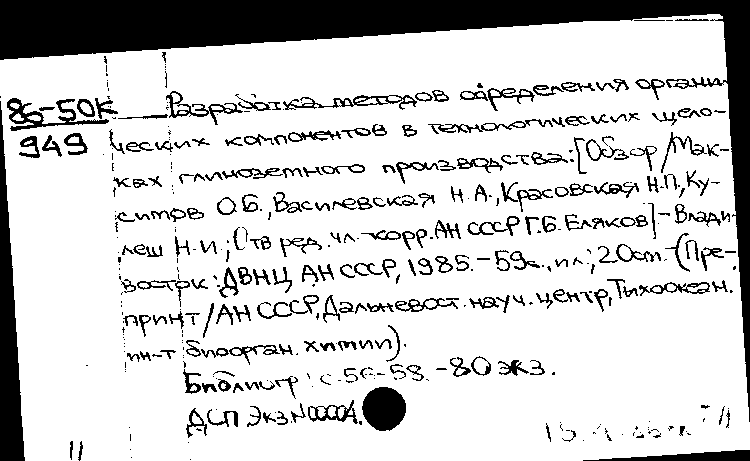 86-50К
949
Разработка методов определения органи-
ческих компонентов в технологических щело-
ках глиноземного производства: [Обзор / Мак-
ситов О.Б., Василевская Н.А., Красовская Н.П., Ку-
леш Н.И.; Отв ред. чл.-корр. АН СССР Г.Б. Еляков] - Влади-
восток: ДВНЦ АН СССР, 1985. - 59с., ил.; 20см. - (Пре-
принт / АН СССР, Дальневост. науч. центр, Тихоокеан.
ин-т биоорган. химии).
Библиогр: с.56-58. - 80 экз.
ДСП. Экз.N00004.
11